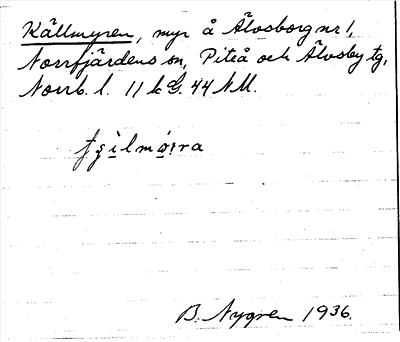 Källmyren, myr å Älvsborg nr 1,
Norrfjärdens sn, Piteå och Älvsby tg,
Norrb. l. 11 k G. 44 NM.
B. Nygren 1936.